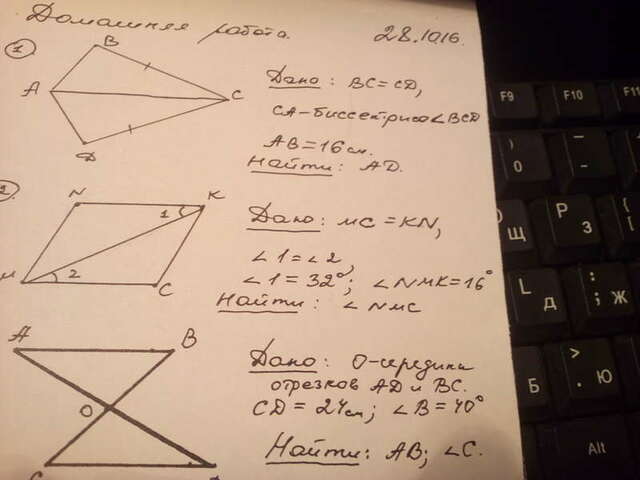 Домашняя работа. 28.10.16.
I
A
B
D
C
Дано: BC=CD,
CA-биссектриса ∠BCD
AB=16см.
Найти: AD.
2
M
N
2
1
C
K
Дано: MC=KN,
∠1=∠2
∠1=32°; ∠NMK=16°
Найти: ∠NMC
A
O
B
C
Дано: O-середина
отрезков AD и BC.
CD=24см; ∠B=40°
Найти: AB; ∠C.
F9
F10
F11
)
0
-
Щ
Р
З
L
Д
:
;
Ж
Б
>
.
Ю
Alt